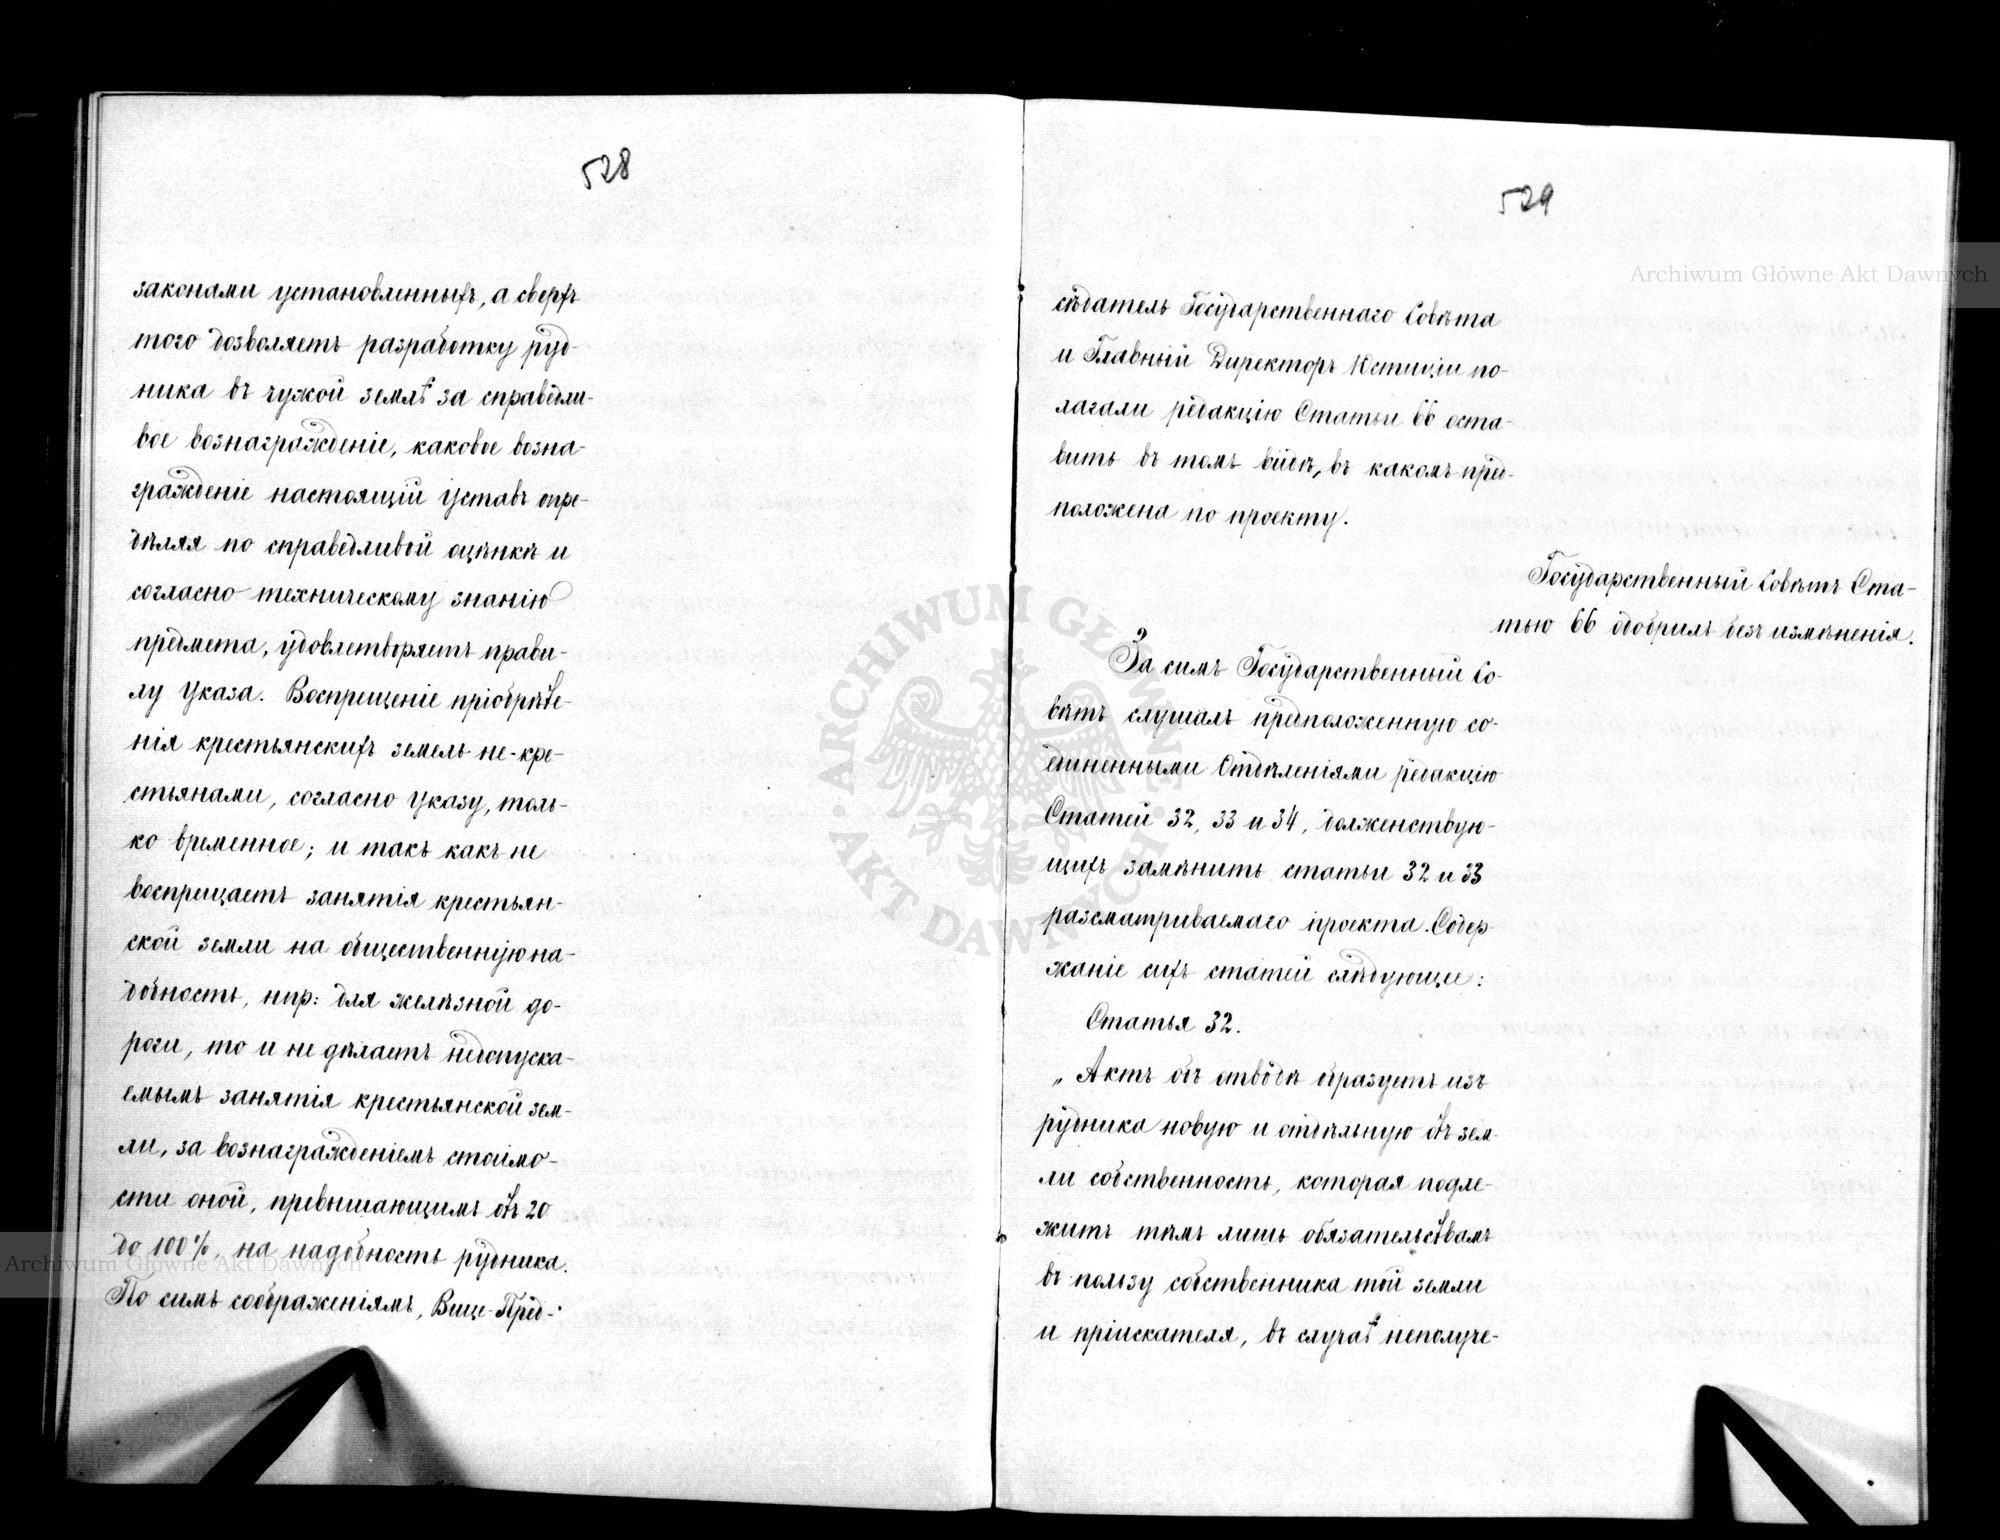 528
законами установленныхъ, а сверхъ
того дозволяетъ разработку руд-
ника въ чужой землѣ за справедли-
вое вознагражденіе, каковое возна-
гражденіе настоящій уставъ опре-
дѣляя по справедливой оцѣнкѣ и
согласно техническому знанію
предмета, удовлетворяетъ прави-
лу Указа. Воспрещеніе пріобрѣте-
нія крестьянскихъ земель не-кре-
стьянами, согласно Указу, толь-
ко временное; и такъ какъ не
воспрещаетъ занятія крестьян-
ской земли на общественную на-
добность, нпр: для желѣзной до-
роги, то и не дѣлаетъ недопуска-
емымъ занятія крестьянской зем-
ли, за вознагражденіемъ стоимо-
сти оной, превышающимъ отъ 20
до 100%, на надобность рудника.
По симъ соображеніямъ, Вице-Пред-
529
сѣдатель Государственнаго Совѣта
и Главный Директоръ Юстиціи по-
лагали редакцію Статьи 66 оста-
вить въ томъ видѣ, въ какомъ пред-
положена по проекту.
Государственный Совѣтъ Ста-
тью 66 одобрилъ безъ измѣненія.
За симъ Государственный Со-
вѣтъ слушалъ предположенную со-
единенными Отдѣленіями редакцію
Статей 32, 33 и 34, долженствую-
щихъ замѣнить статьи 32 и 33
разсматриваемаго проекта. Содер-
жаніе сихъ статей слѣдующее:
Статья 32.
„Актъ объ отводѣ образуетъ изъ
рудника новую и отдѣльную отъ зем-
ли собственность, которая подле-
житъ тѣмъ лишь обязательствамъ
въ пользу собственника той земли
и пріискателя, въ случаѣ неполуче-
Archiwum Główne Akt Dawnych
Archiwum Główne Akt Dawnych
ARCHIWUM GŁÓWNE AKT DAWNYCH